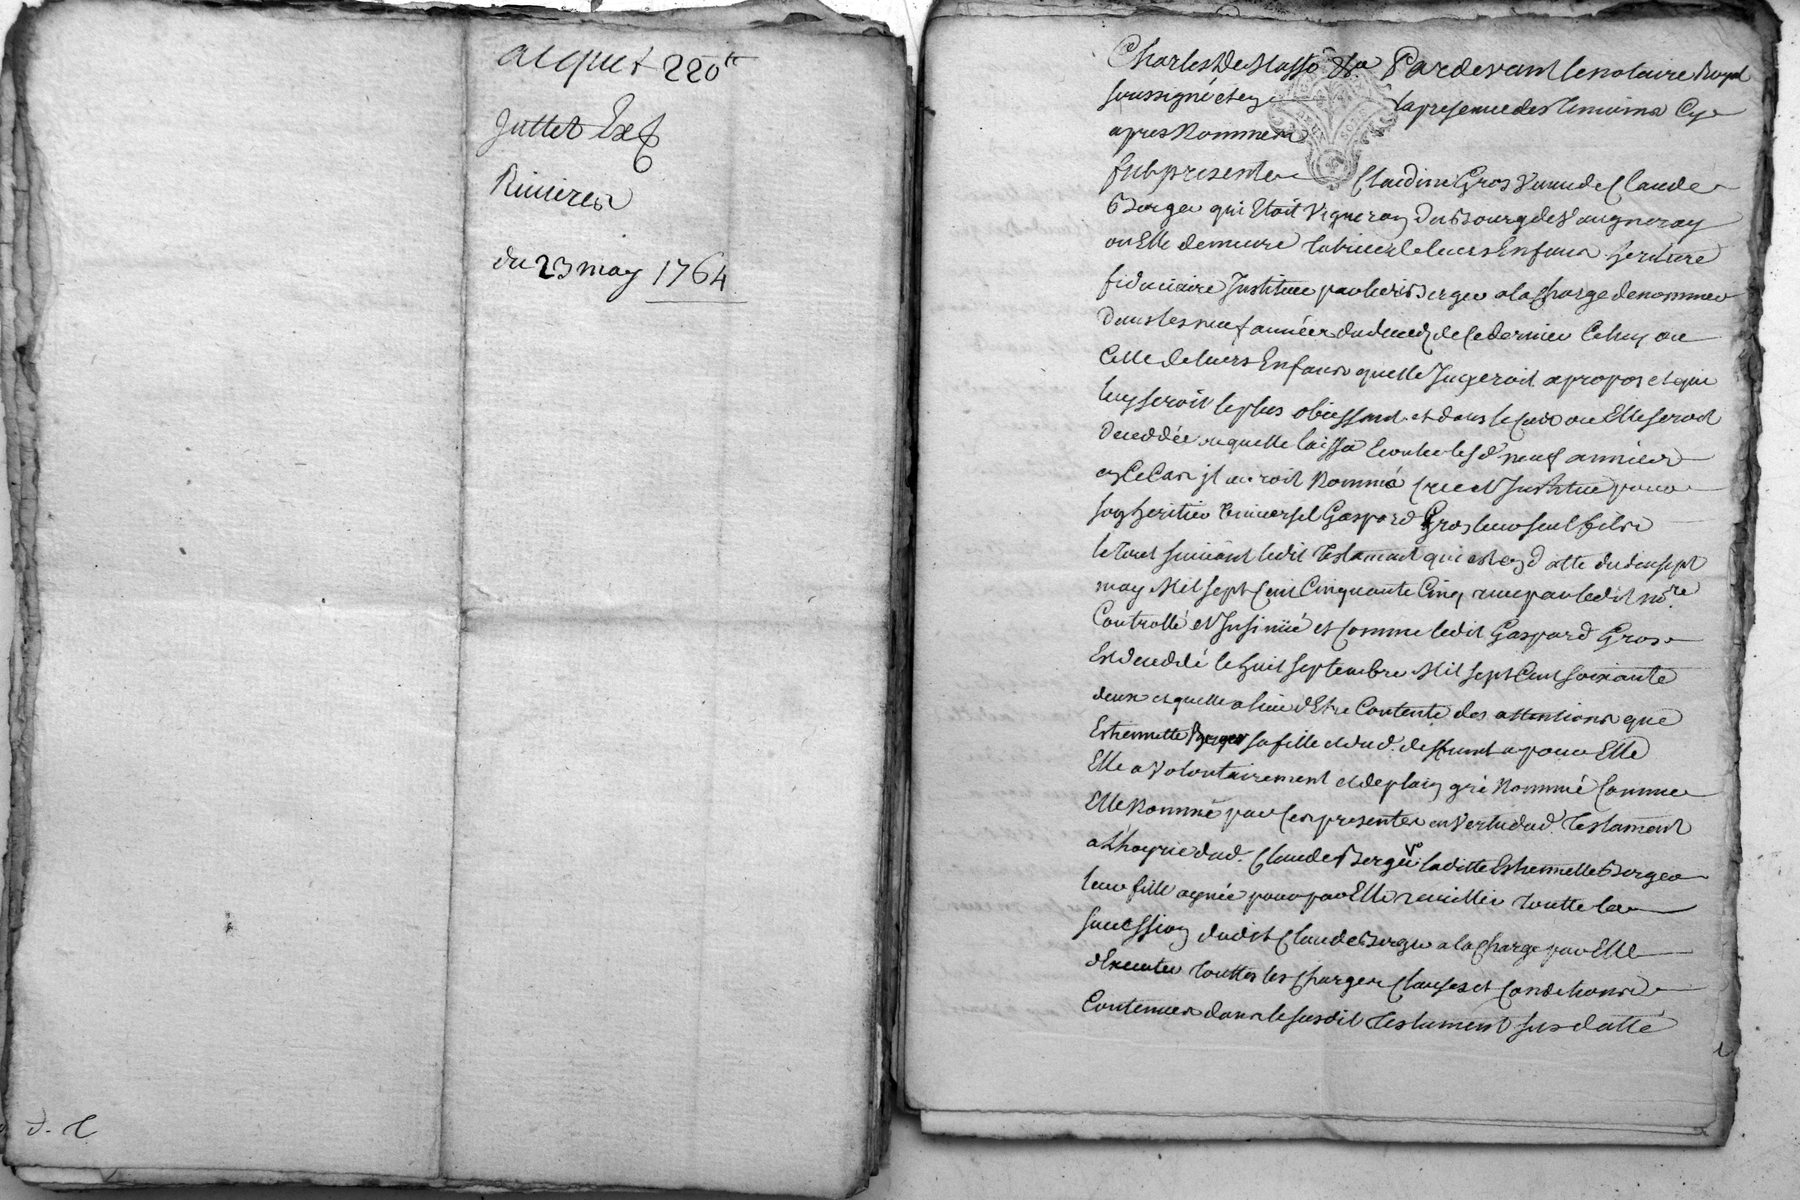 acquet 220ᵗᵗ
Juttet Ex
Rivieres
du 23 may 1764
d. C
Charles De Masso &a Pardevant le notaire Royal
soussigné et en la presence des Temoins Cy
apres Nommés
fut presente Claudine Gros Veuve de Claude
Berger qui Etoit Vigneron du Bourg de Vaugneray
ou Elle demeure tutrice de leurs Enfans heritiere
fiduciaire Instituee par led. Berger a la Charge de nommer
Dans les neuf années du deced de Ce dernier Celuy ou
Celle de leurs Enfans quelle Jugeroit apropos et qui
luy seroit le plus obeissant et dans le Cas ou Elle seroit
deceddée ou quelle laissa Ecouler lesd. neuf années
en Ce Cas jl auroit Nommé Créé et Institué pour
son heritier Universel Gaspard Gros leur seul fils
le tout suivant ledit testament qui est en datte du dixsept
may Mil sept Cent Cinquante Cinq receu par ledit no.re
Controllé et Insinüé et Comme ledit Gaspard Gros
Est deceddé le huit septembre Mil sept Cent soixante
deux et quelle a lieu d'Etre Contente des attentions que
Estiennette Berger sa fille et dud. deffunt a pour Elle
Elle a Volontairement et de plain gré Nommé Comme
Elle Nomme par Ces presentes en Vertu dud. testament
a L'hoyrie dud. Claude Berger laditte Estiennette Berger
leur fille aynée pour par Elle recuillir toutte la
succession dudit Claude Berger a la Charge par Elle
d'Executer touttes les Charges Clauses et Conditions
Contenues dans le susdit testament sus datté